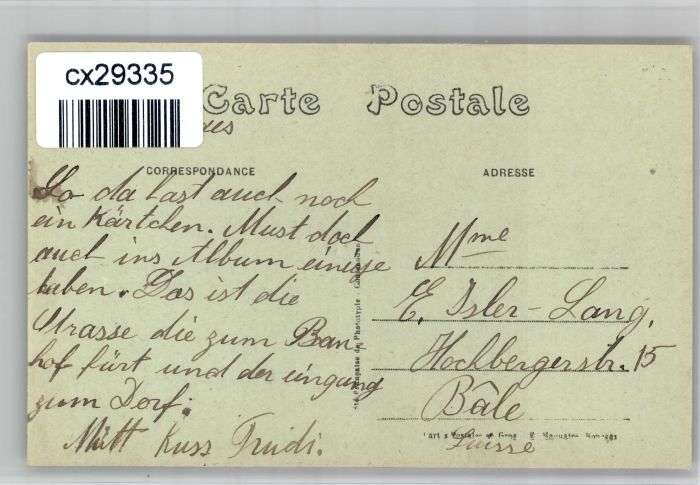 cx29335
Carte Postale
CORRESPONDANCE
ADRESSE
So da hast auch noch
ein Kärtchen. Must doch
auch ins Album einige
haben. Das ist die
Strasse die zum Ban-
hof fürt und der eingang
zum Dorf.
Mütt Kuss Trudi.
Mme
E. Isler-Lang,
Hochbergerstr. 15
Bâle
Suisse